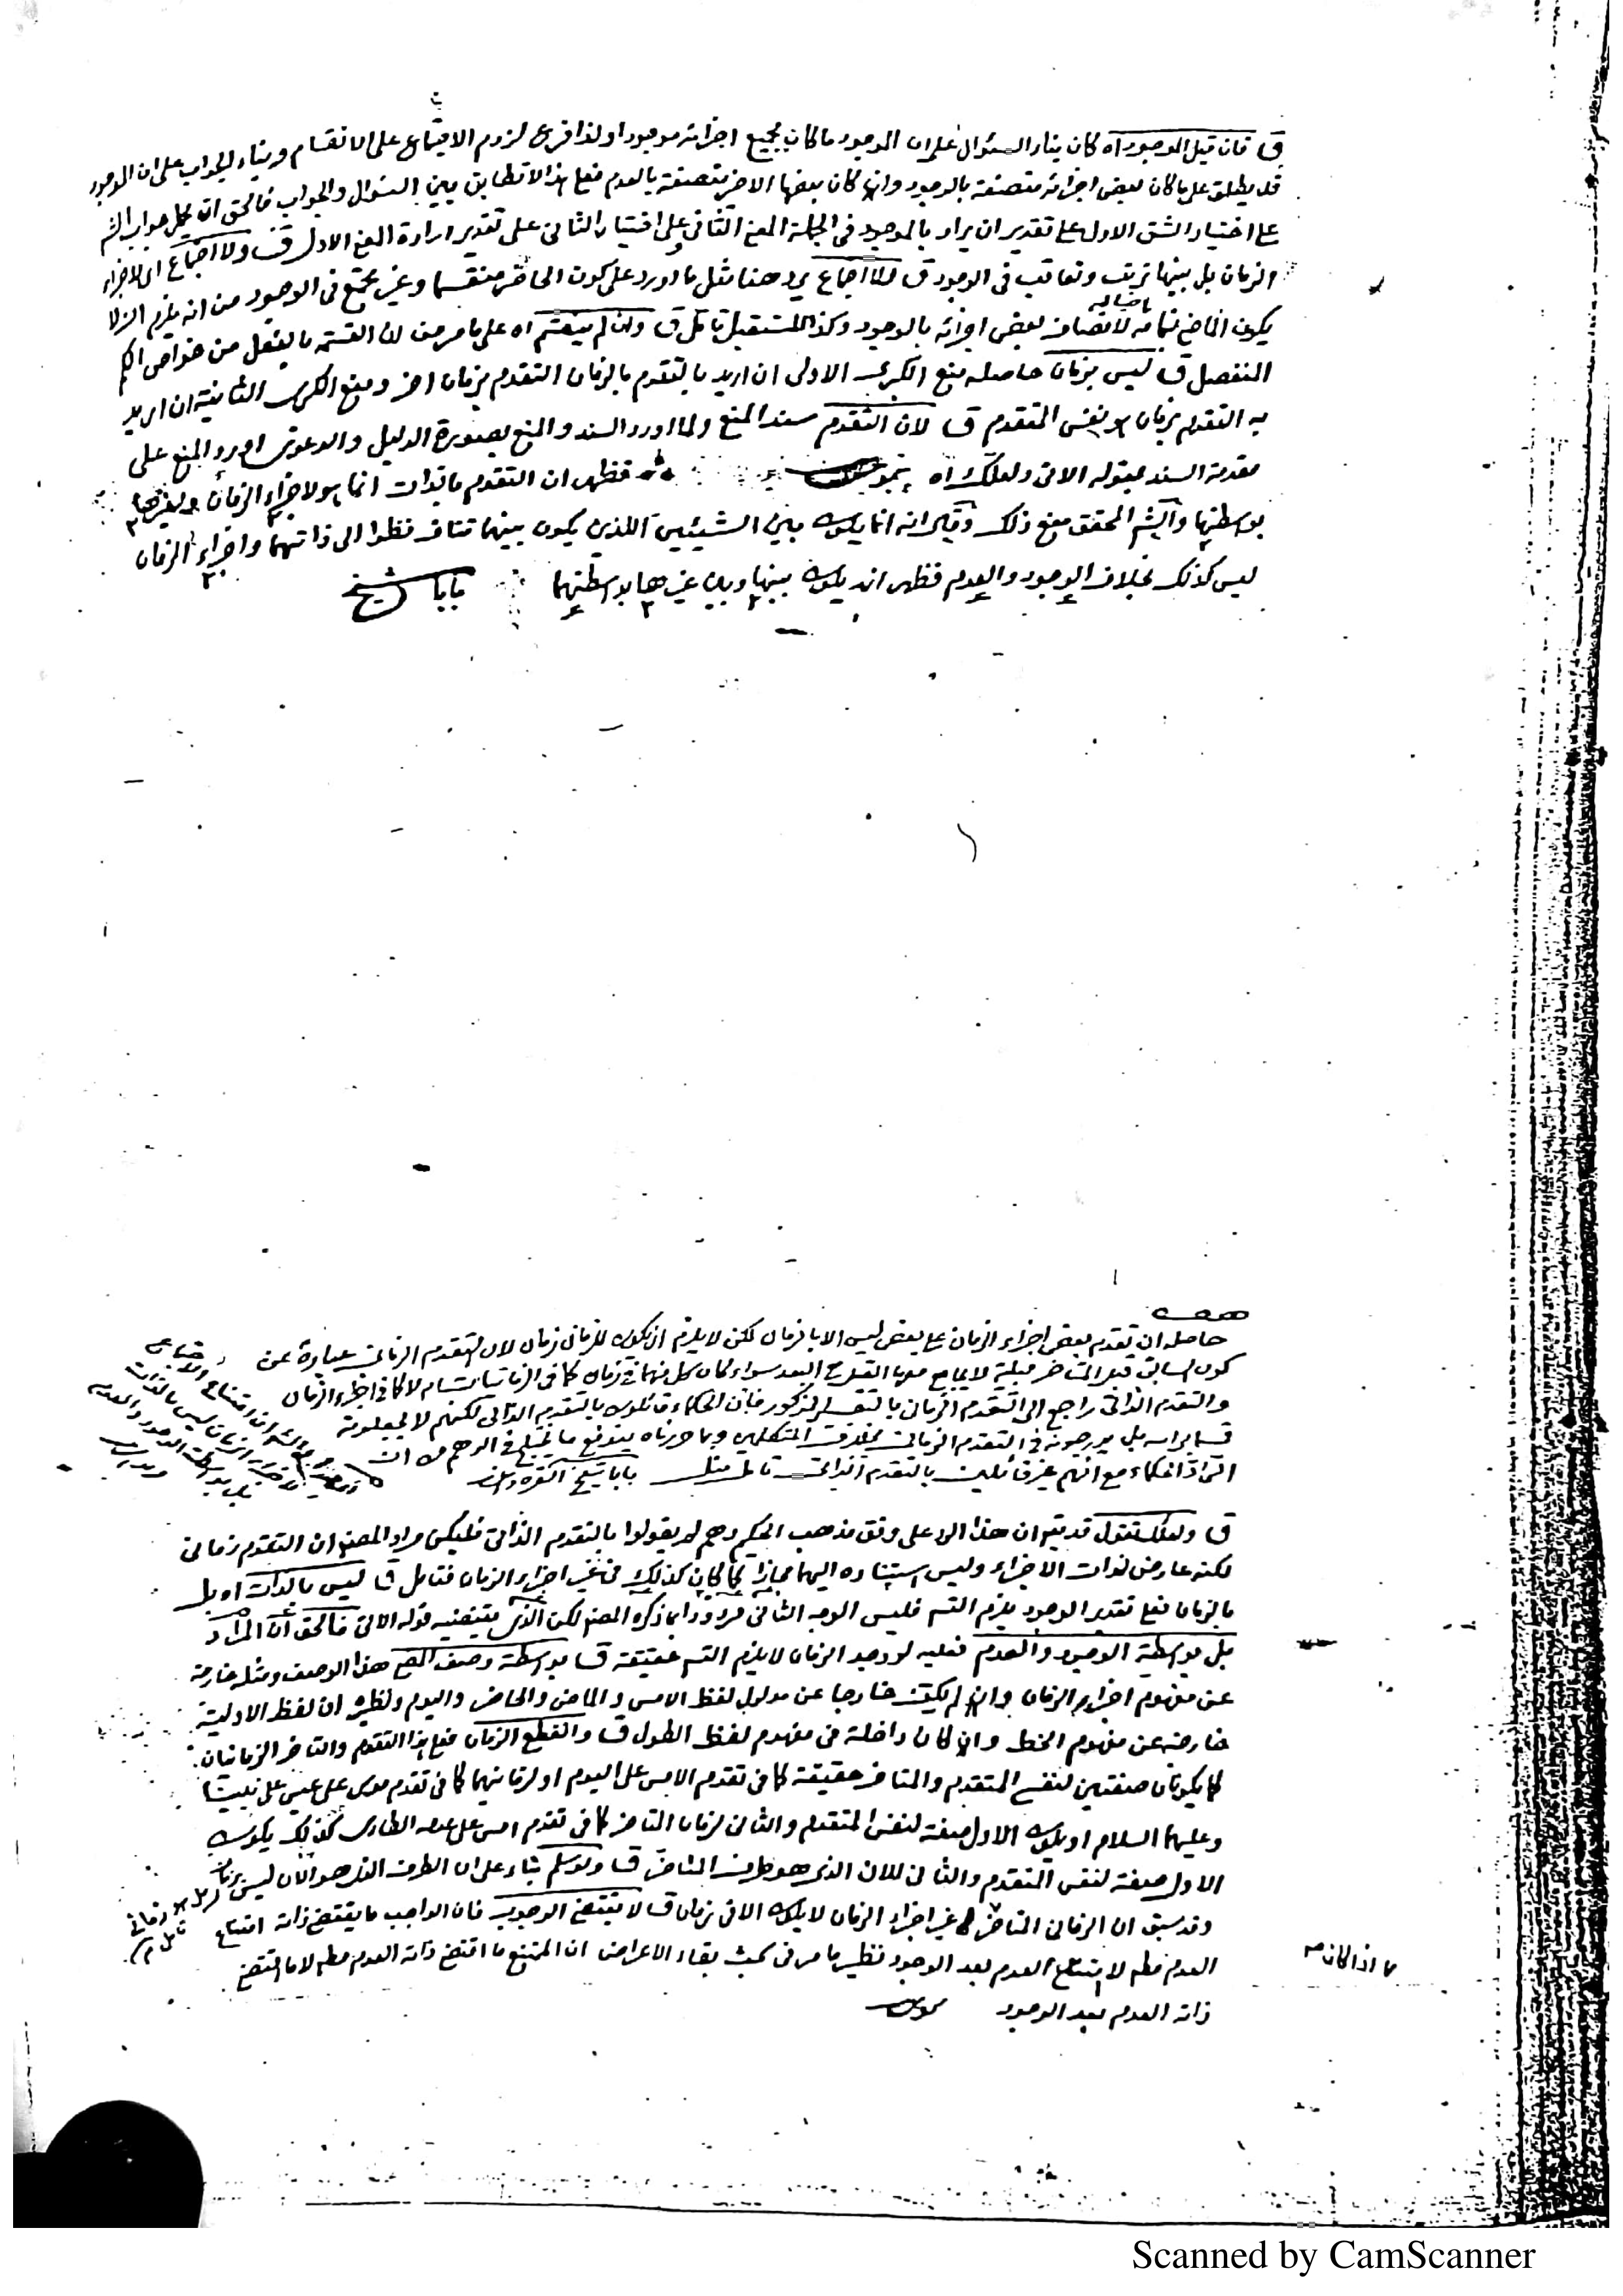 ق فان قيل الموجود اه كان بناء السئوال على ان الموجود ما كان بجميع اجزائه موجودا ولذا فرع لزوم الاجتماع على الانقسام وبناء الجواب على ان الموجود
قد يطلق على ما كان بعض اجزائه متصفة بالوجود وان كان بعضها الاخر متصفة بالعدم فعلى هذا لا تطابق بين السئوال والجواب فالحق ان جواب الش
على اختيار الشق الاول على تقدير ان يراد بالموجود في الجملة المعنى الثاني وعلى اختيار الثاني على تقدير ارادة المعنى الاول ق ولا اجتماع اى لاجزاء
الزمان بل بينها ترتب وتعاقب في الوجود ق فلا اجتماع يرد هنا مثل ما اورد على كون الحاضر منقسما وغير مجتمع في الوجود من انه يلزم ان لا
يكون الماضي لاتصاف بعض اجزائه بالوجود وكذا المستقبل تامل ق وان لم ينقسم اه على ما مر من ان القسمة بالفعل من خواص الكم
المنفصل ق ليس بزمان حاصله منع الكبرى الاولى ان اريد بالتقدم بالزمان التقدم بزمان اخر ومنع الكبرى الثانية ان اريد
به التقدم بزمان هو نفس المتقدم ق لان التقدم سند المنع ولما اورد السند والمنع بصورة الدليل والدعوى اورد المنع على
مقدمة السند بقوله الاتى ولعلك اه فظهر ان التقدم بالذات انما هو لاجزاء الزمان ولغيرها
بواسطتها والش المحقق منع ذلك وقال انه انما يكون بين الشيئين اللذين يكون بينهما تناف نظرا الى ذاتهما واجزاء الزمان
ليس كذلك بخلاف الوجود والعدم فظهر انه يكون بينها وبين غيرها بواسطتهما بابا شيخ
حاصله ان تقدم بعض اجزاء الزمان على بعض ليس الا بالزمان لكن لا يلزم ان يكون للزمان زمان لان التقدم الزماني عبارة عن
كون السابق قبل المتاخر قبلية لا يجامع معها القبل البعد سواء كان كل منهما في زمان كما في الزمانيات ام لا كما في اجزاء الزمان
والتقدم الذاتى راجع الى التقدم الزماني بالتفسير المذكور فان الحكماء قائلون بالتقدم الذاتى لكنهم لا يجعلونه
قسما براسه بل يدرجونه في التقدم الزماني بخلاف المتكلمين وبما حررناه يندفع ما يختلج في الوهم من ان
الحكماء مع انهم غير قائلين بالتقدم الذاتى تامل بابا شيخ
ق ولعلك تقول قد يتم ان هذا الرد على وفق مذهب الحكيم وهم لم يقولوا بالتقدم الذاتى فليكن مراد المصنف ان التقدم زماني
لكنه عارض لذات الاجزاء وليس استناده اليها مجازا كما كان كذلك في غير اجزاء الزمان فتامل ق ليس بالذات اه بل
بالزمان فعلى تقدير الوجود يلزم التس فليس الوجه الثانى مردودا بما ذكره المصنف لكن الذى يقتضيه قوله الاتى فالحق ان المراد
بل بواسطة الوجود والعدم فعليه لو وجد الزمان لا يلزم التس حقيقة ق بواسطة وصف هذا الوصف ومثله خارجة
عن مفهوم اجزاء الزمان وان لم يكن خارجا عن مدلول لفظ الامس والماضى والحاضر واليوم ونظيره ان لفظ الاولية
خارجة عن مفهوم الخط وان كان داخلة في مفهوم لفظ الطول ق والقطع الزمان فعلى هذا التقدم والتاخر الزمانيان
كما يكونان صفتين لنفس المتقدم والمتاخر حقيقة كما في تقدم الامس على اليوم او لزمانيهما كما في تقدم موسى على عيسى على نبينا
وعليهما السلام او يكون الاول صفة لنفس المتقدم والثانى لزمان المتاخر كما في تقدم امس على عدمه الطارى كذلك يكون
الاول صفة لنفس المتقدم والثانى للان الذى هو طرف المتاخر ق ولو سلم بناء على ان الطرف الذى هو الان ليس بزمان
وقد سبق ان الزمانى المتاخر في غير اجزاء الزمان لا يكون الا في زمان ق لا يقتضى الوجوب فان الواجب ما يقتضى ذاته امتناع
العدم مطم لا امتناع العدم بعد الوجود نظير ما مر في بحث بقاء الاعراض ان الممتنع ما اقتضى ذاته العدم مطم لا ما اقتضى
ذاته العدم بعد الوجود
اذا كان
Scanned by CamScanner